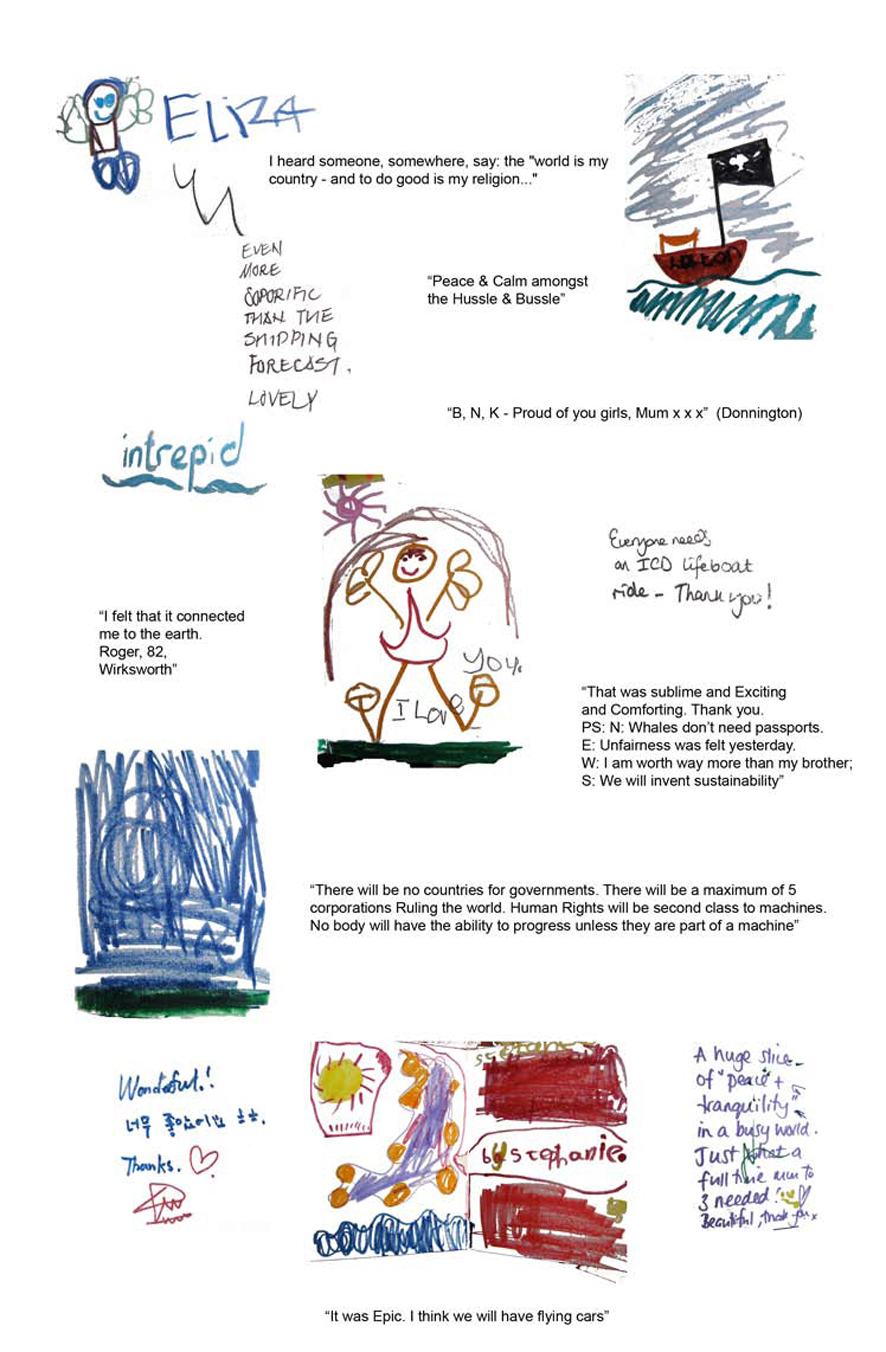 ELIZA
I heard someone, somewhere, say: the "world is my
country - and to do good is my religion..."
EVEN
MORE
SOPORIFIC
THAN THE
SHIPPING
FORECAST.
LOVELY
“Peace & Calm amongst
the Hussle & Bussle”
“B, N, K - Proud of you girls, Mum x x x” (Donnington)
intrepid
Everyone needs
an ICD lifeboat
ride - Thank you!
“I felt that it connected
me to the earth.
Roger, 82,
Wirksworth”
I Love
you
“That was sublime and Exciting
and Comforting. Thank you.
PS: N: Whales don’t need passports.
E: Unfairness was felt yesterday.
W: I am worth way more than my brother;
S: We will invent sustainability”
“There will be no countries for governments. There will be a maximum of 5
corporations Ruling the world. Human Rights will be second class to machines.
No body will have the ability to progress unless they are part of a machine”
Wonderful!!
너무 좋았어요 ㅎㅎ.
Thanks.
stephanie
by stephanie.
A huge slice
of "peace +
tranquility"
in a busy world.
Just what a
full time mum to
3 needed!
Beautiful, thank you x
“It was Epic. I think we will have flying cars”